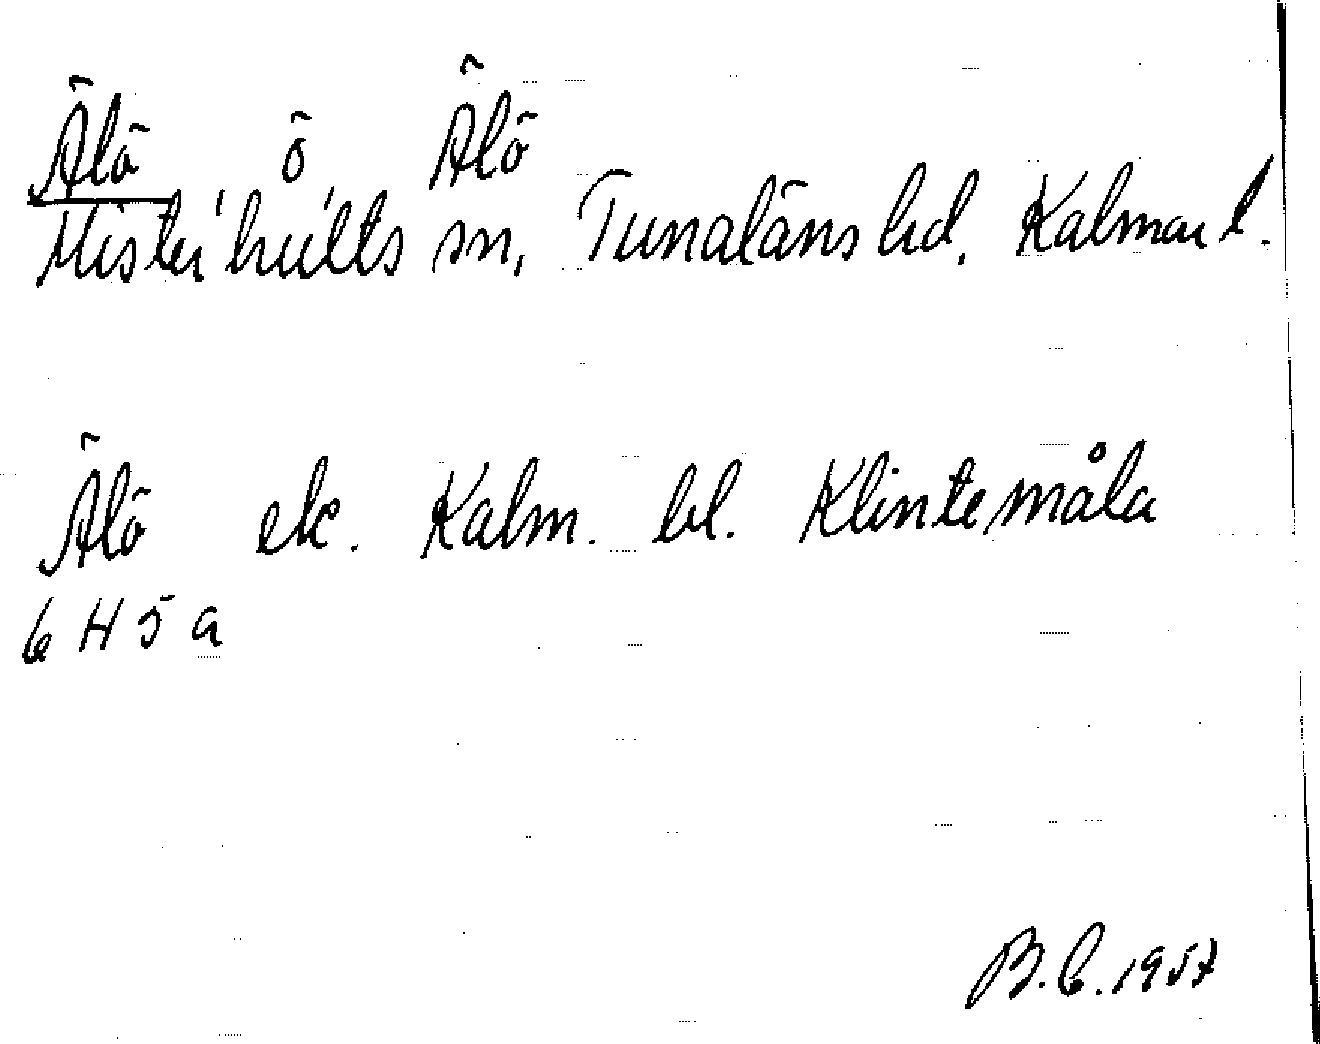 Älö ö Älö
Misterhults sn, Tunaläns hd. Kalmar l.
Älö ek. Kalm. bl. Klintemåla
6 H 5 a
B.C. 1957